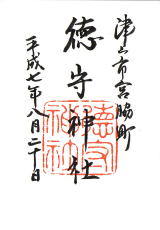 津山市宮脇町
徳守神社
平成七年八月二十日
徳守
神社